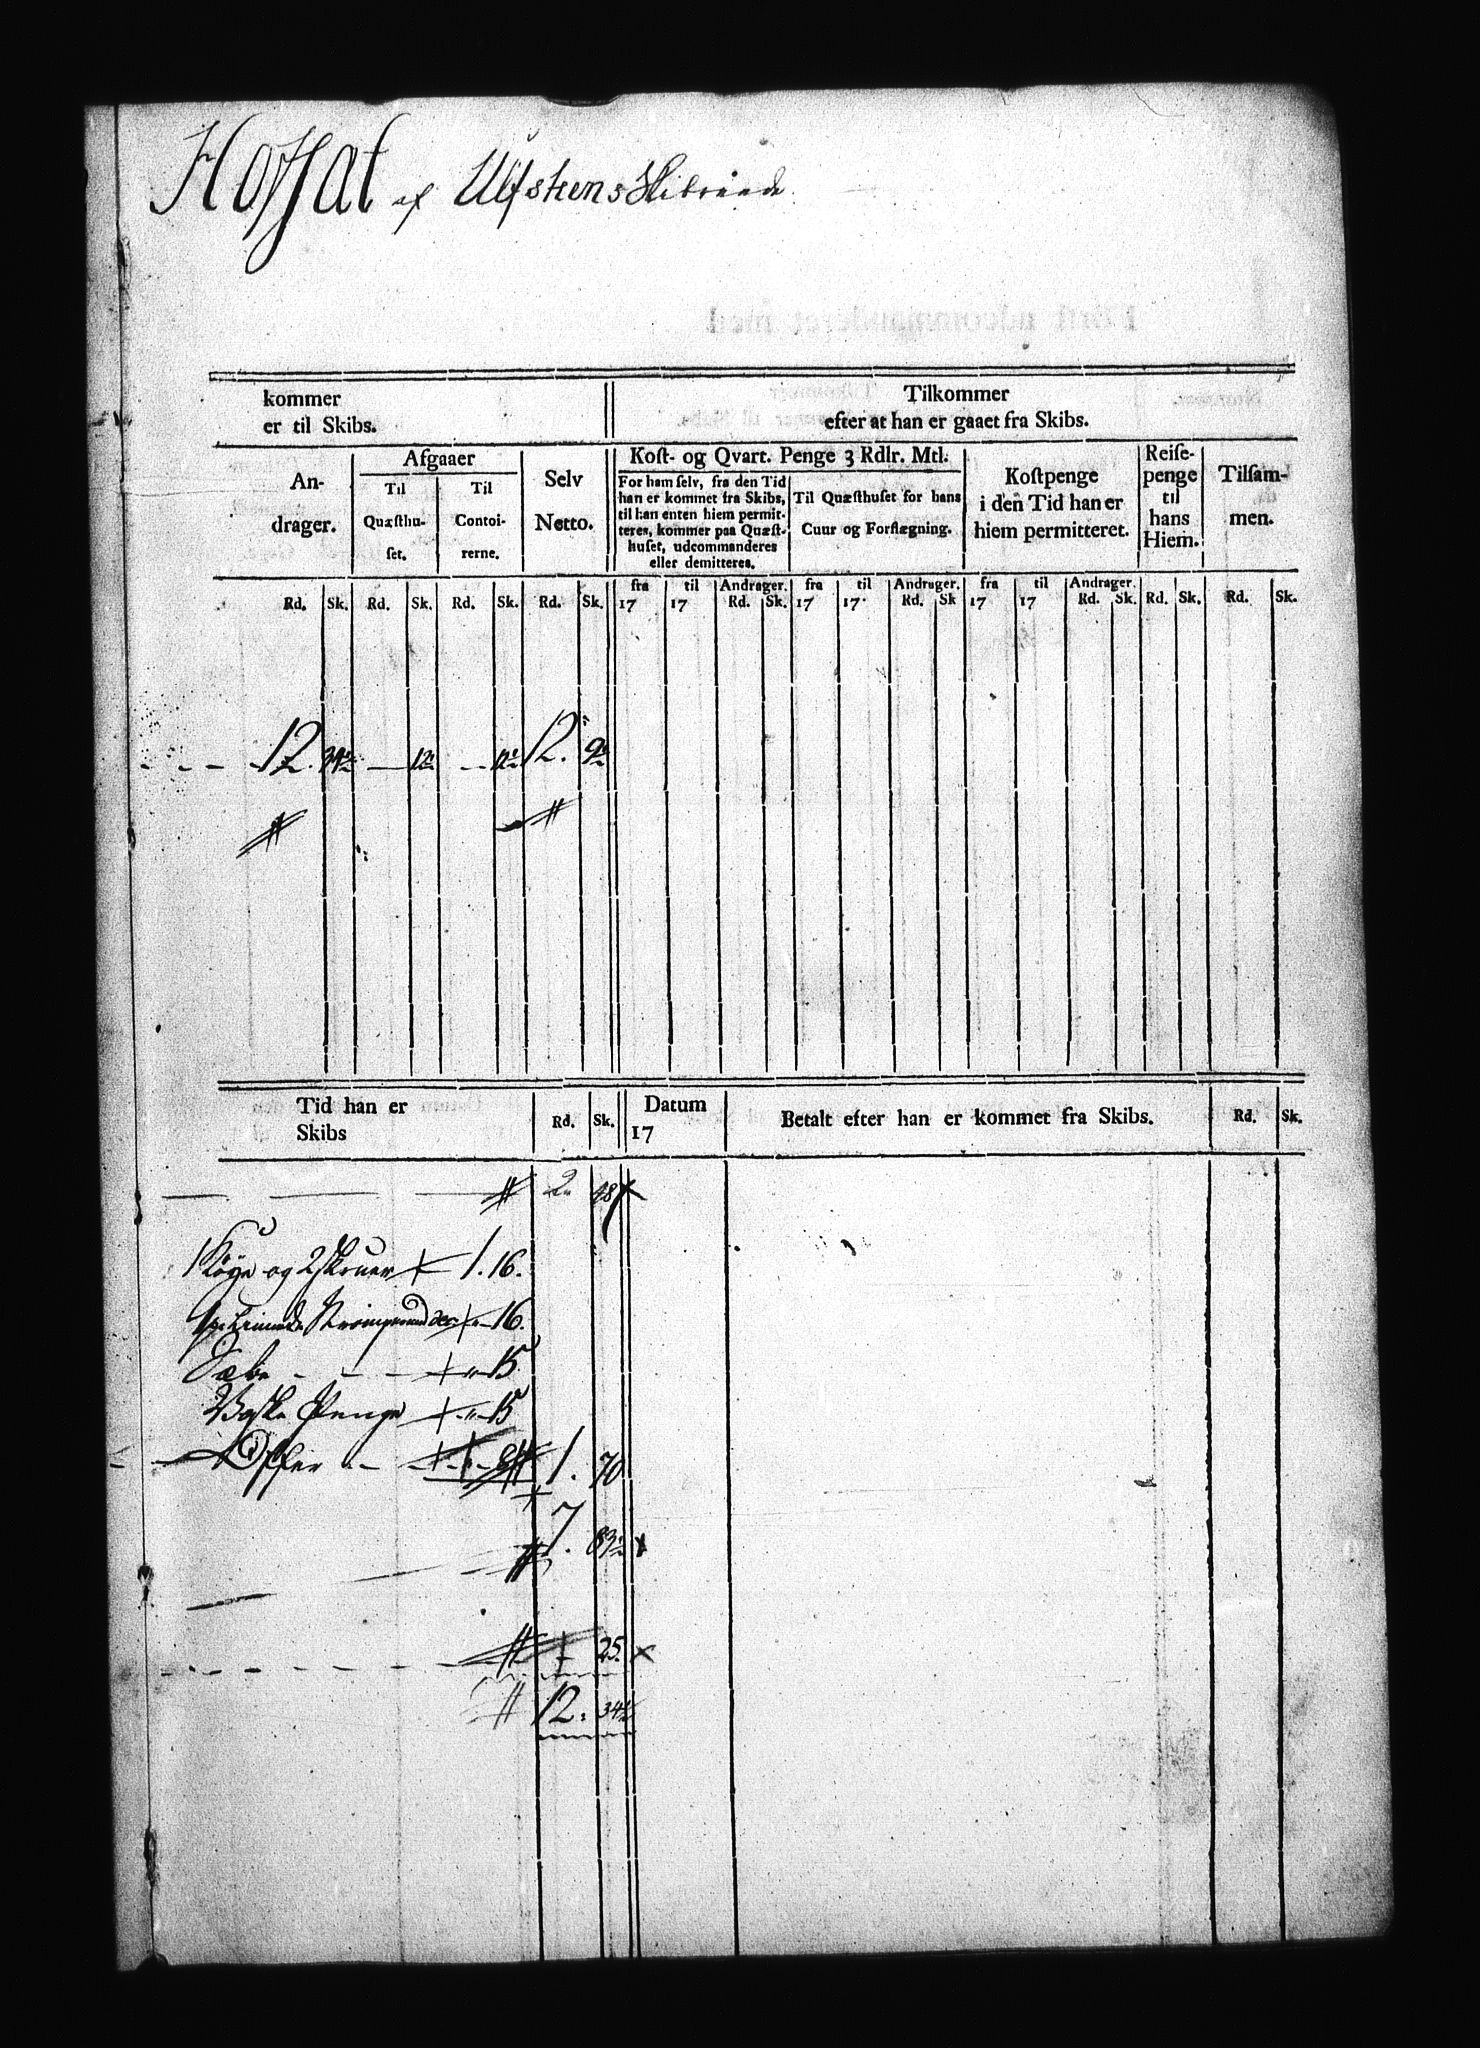 af Ulfsteens Skibræde
kommer
er til Skibs.
Tilkommer
efter at han er gaaet fra Skibs.
An-
drager.
Afgaaer
Til
Quæsthu-
set.
Til
Contoi-
rerne.
Selv
Netto.
Kost- og Qvart. Penge 3 Rdlr. Mtl.
For ham selv, fra den Tid
han er kommet fra Skibs,
til han enten hiem permit-
teres, kommer paa Quæst-
huset, udcommanderes
eller demitteres.
Til Quæsthuset for hans
Cuur og Forflægning.
Kostpenge
i den Tid han er
hiem permitteret.
Reise-
penge
til
hans
Hiem.
Tilsam-
men.
fra til Andrager. fra til Andrager. fra til Andrager.
Rd. Sk. Rd. Sk. Rd. Sk. Rd. Sk. 17 17 Rd. Sk. 17 17 Rd. Sk 17 17 Rd. Sk. Rd. Sk. Rd. Sk.
12. 12. 9
Tid han er
Skibs
Rd. Sk.
Datum
17
Betalt efter han er kommet fra Skibs.
Rd. Sk.
2 48
1 Køye og 2 Skruer 1. 16.
16.
Sæbe 15
Vaske Penge 15
Offer 1. 70
7. 83
25.
12. 34½